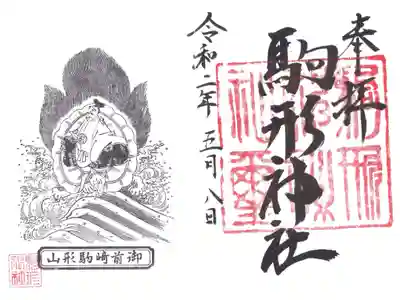 奉拝
駒形神社
令和二年五月八日
御前崎駒形山